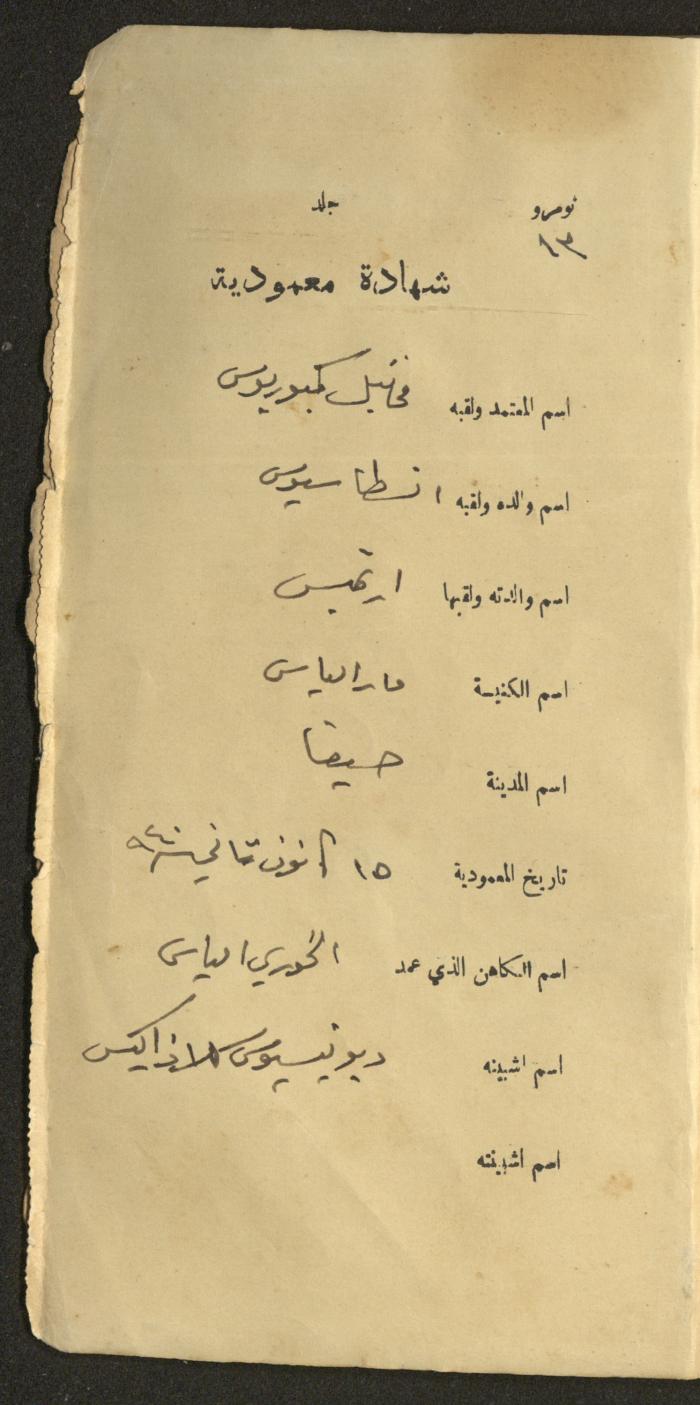 نومرو جلد
١٣
شهادة معمودية
اسم المعتمد ولقبه مخائيل كبوريوس
اسم والده ولقبه انسطاسيوس
اسم والدته ولقبها ارتميس
اسم الكنيسة مار الياس
اسم المدينة حيفا
تاريخ المعمودية ١٥ كانون ثاني سنة ٩٤٠
اسم الكاهن الذي عمد الخوري الياس
اسم اشبينه ديونيسيوس
اسم اشبينته